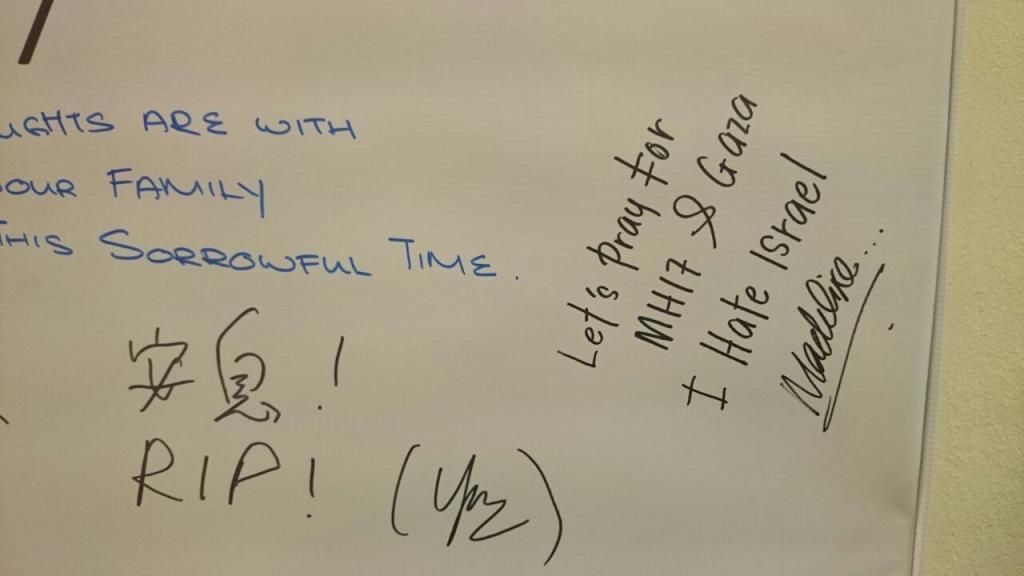 UGHTS ARE WITH
OUR FAMILY
THIS SORROWFUL TIME.
安息!
RIP!
Let's Pray for
MH17 & Gaza
I Hate Israel
Madeline...